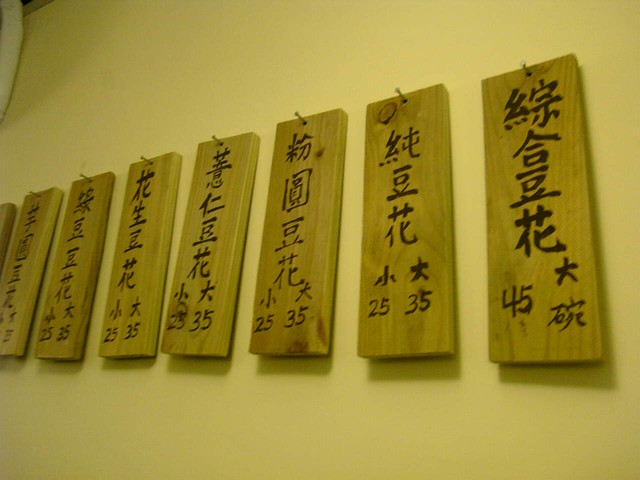 綜合豆花
大碗
45
純豆花
小 大
25 35
粉圓豆花
小 大
25 35
薏仁豆花
小 大
25 35
花生豆花
小 大
25 35
綠豆豆花
小 大
25 35
芋圓豆花
小 大
25